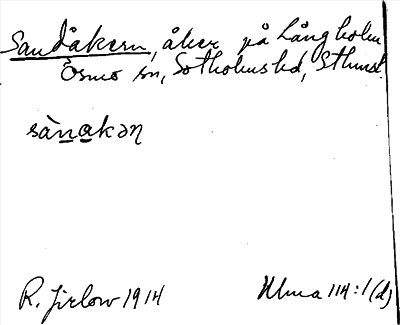 Sandåkern, åker på Långholm
Ösmo sn, Sotholms hd, Sthms l.
sàn̲a̲kəɳ
R. Jirlow 1914 Ulma 114:1(d)